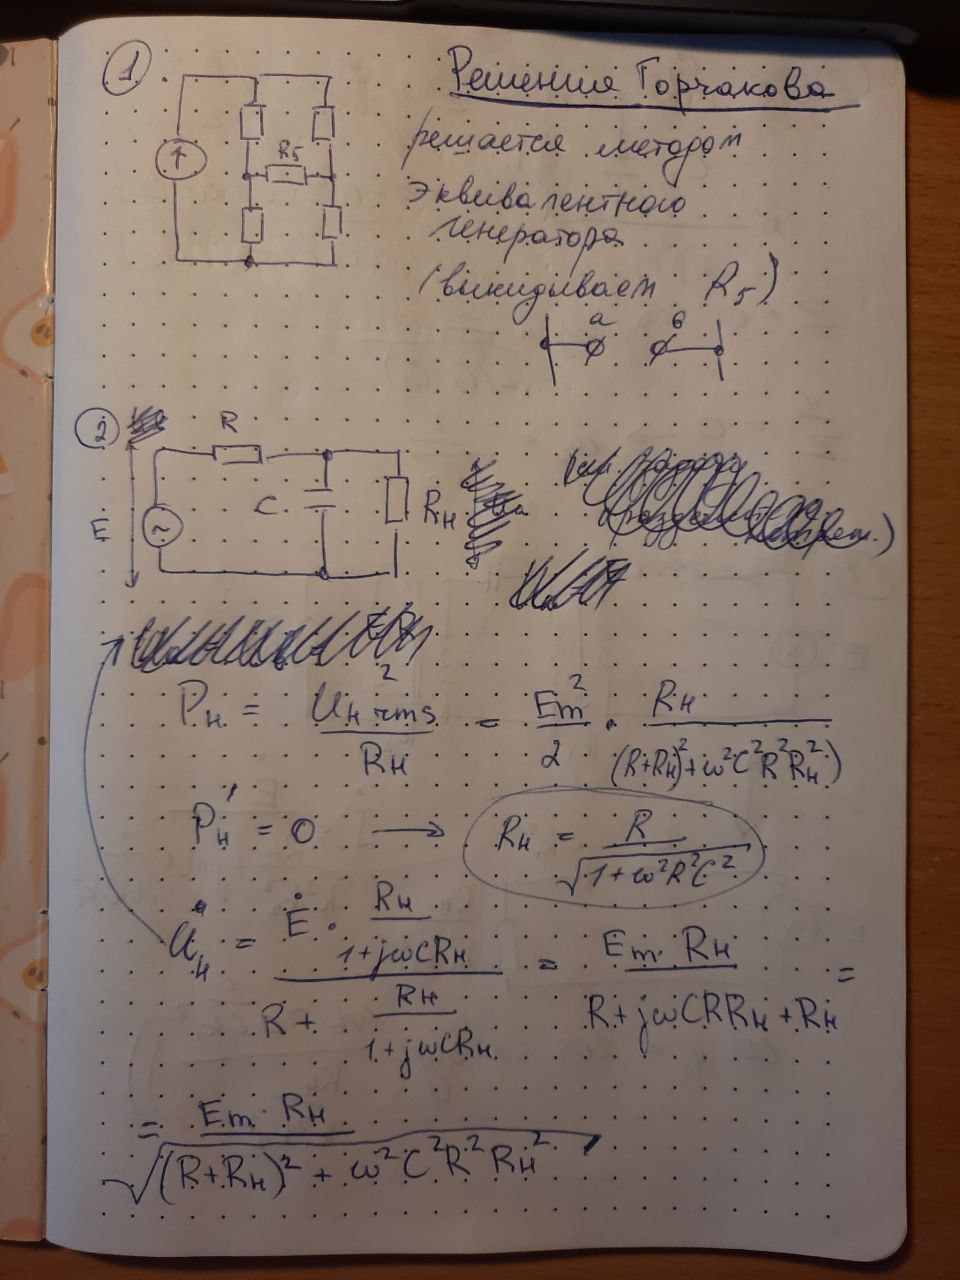 1
Решения Горчакова
решается методом
эквивалентного
генератора
(выкидываем R5)
R5
a в
2
R
E
C
Rн
Pн = Uн rms² / Rн = Em² / 2 · Rн / ((R+Rн)² + ω²C²R²Rн²)
Pн' = 0 → Rн = R / √(1+ω²R²C²)
U̇н = Ė · Rн / (1+jωCRн) / (R + Rн / (1+jωCRн)) = Em · Rн / (R + jωCRRн + Rн) =
= Em · Rн / √((R+Rн)² + ω²C²R²Rн²)